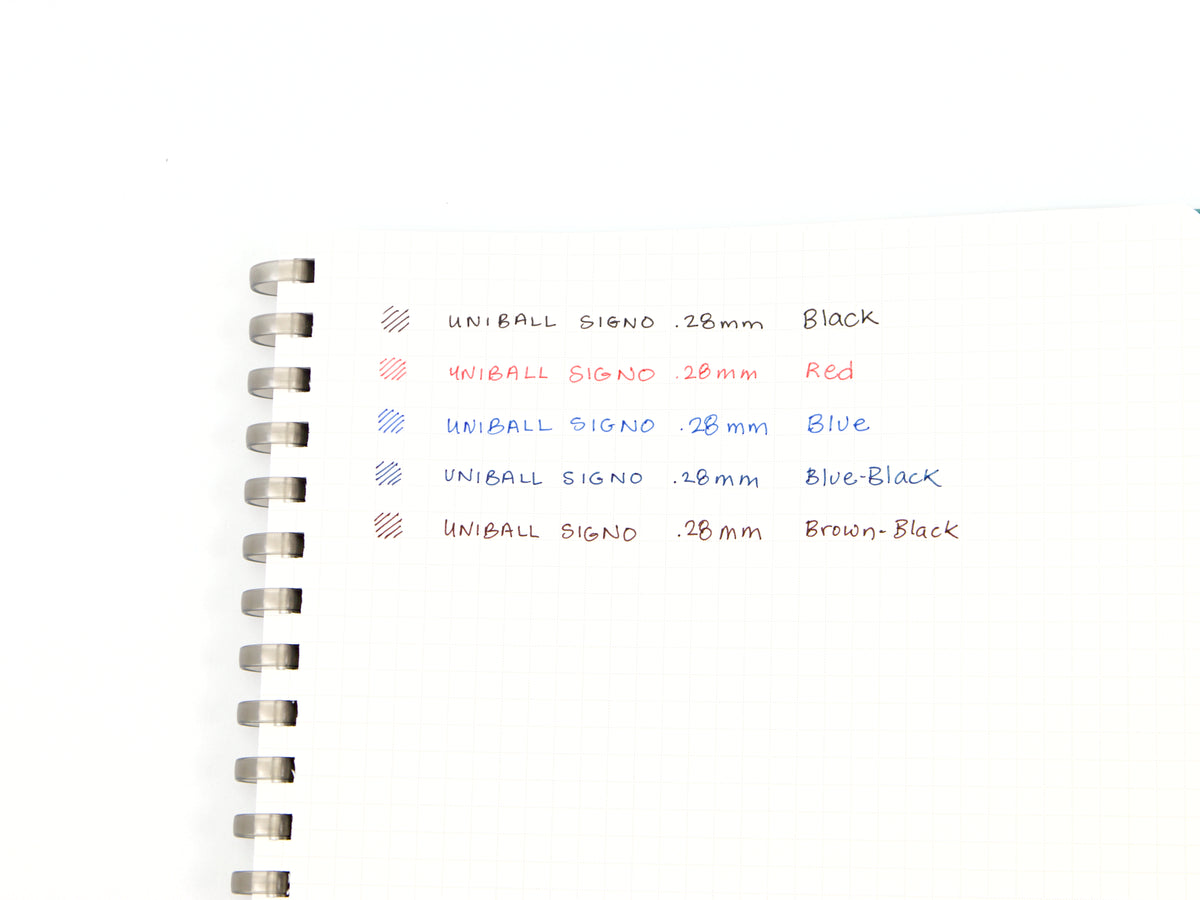 UNIBALL SIGNO .28mm Black
UNIBALL SIGNO .28mm Red
UNIBALL SIGNO .28mm Blue
UNIBALL SIGNO .28mm Blue-Black
UNIBALL SIGNO .28mm Brown-Black